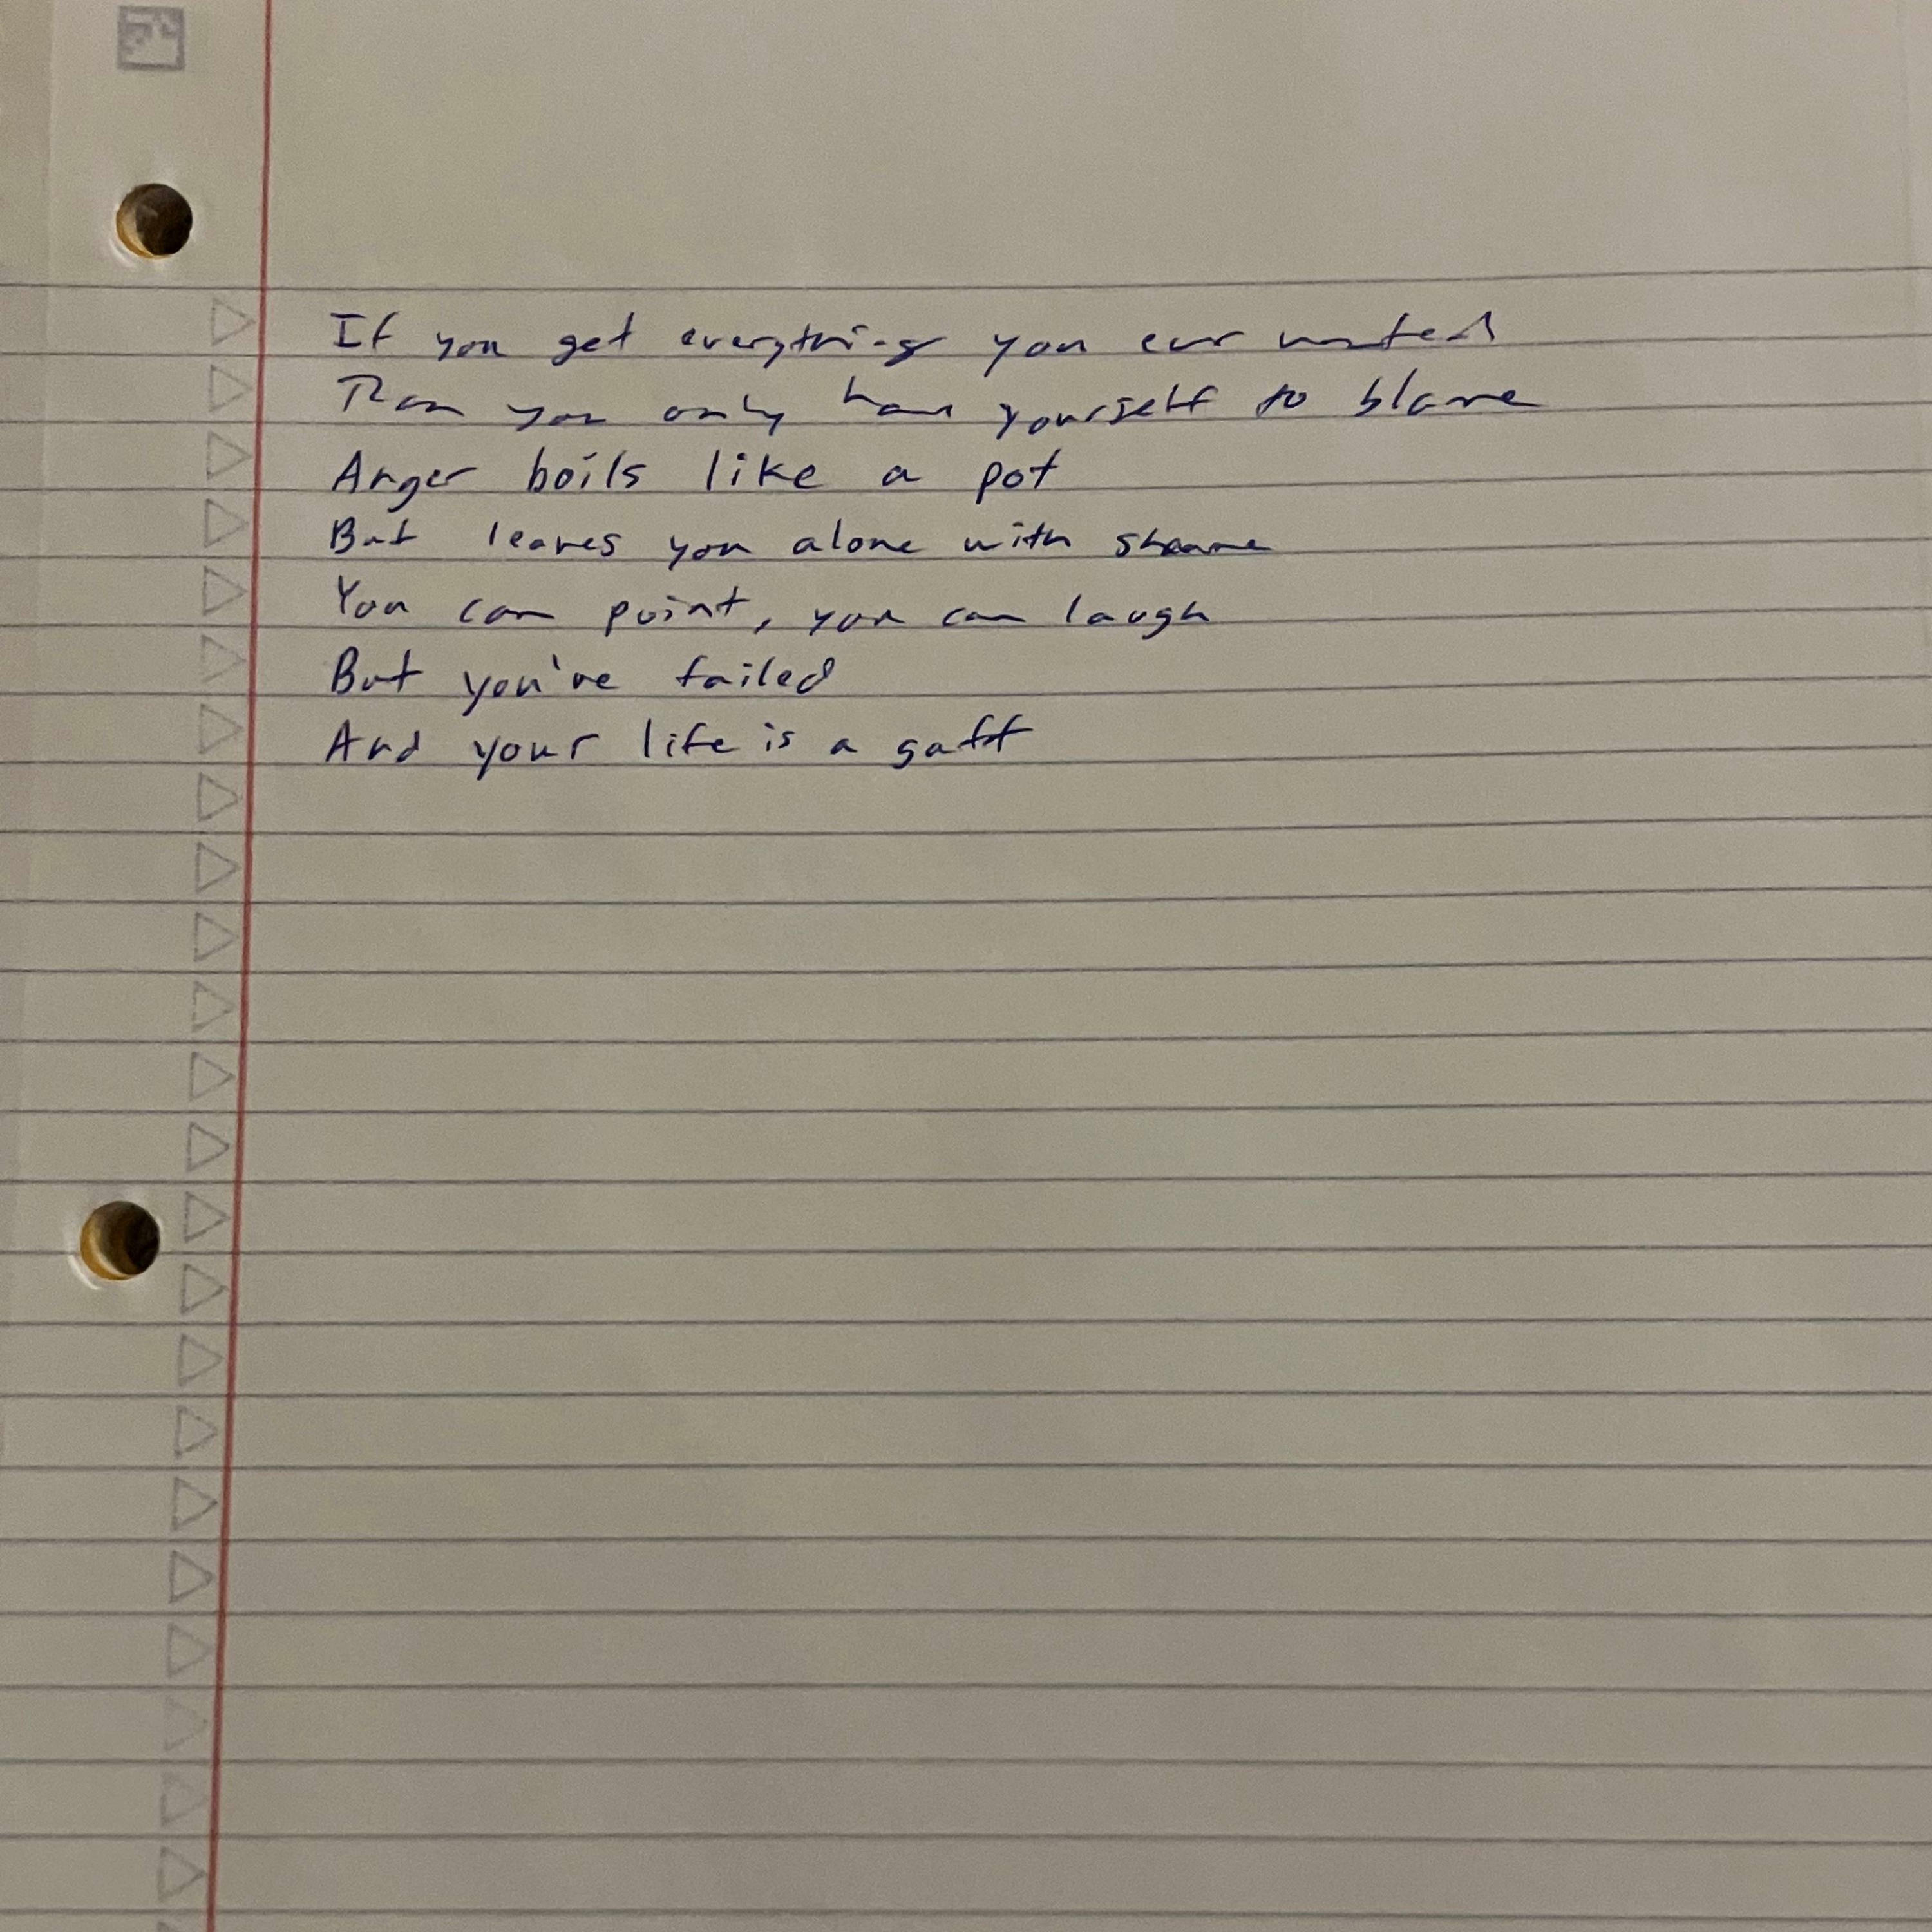 If you get everything you ever wanted
Then you only have yourself to blame
Anger boils like a pot
But leaves you alone with shame
You can point, you can laugh
But you've failed
And your life is a gaff